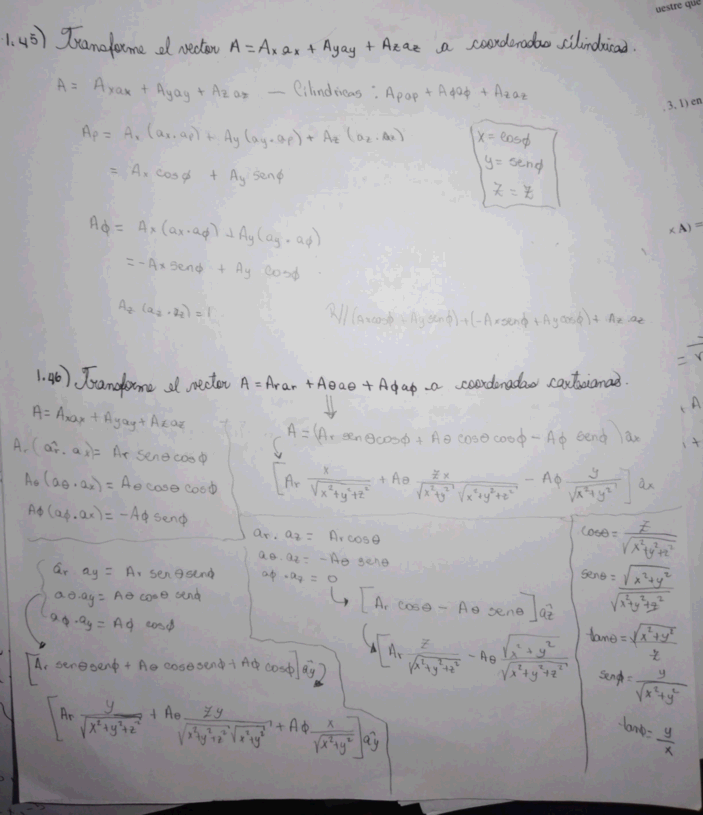 uestre que
1.45) Transforme el vector A = Ax ax + Ay ay + Az az a coordenadas cilindricas.
A = Axax + Ayay + Az az — Cilindricas : Aρaρ + Aϕaϕ + Azaz
. 3. 1) en
Aρ = Ax (ax·aρ) + Ay (ay·aρ) + Az (az·
= Ax cosϕ + Ay senϕ
x = cosϕ
y = senϕ
z = z
Aϕ = Ax (ax·aϕ) + Ay (ay·aϕ)
= -Ax senϕ + Ay cosϕ
x A) =
Az (az·az) = 1
R// (Axcosϕ + Aysenϕ) + (-Axsenϕ + Aycosϕ) + Az az
1.46) Transforme el vector A = Arar + Aθaθ + Aϕaϕ a coordenadas cartesianas.
⇓
A = Axax + Ayay + Azaz
A = (Ar senθcosϕ + Aθ cosθcosϕ - Aϕ senϕ) ax
Ar (ar·ax) = Ar senθcosϕ
[Ar x/√(x²+y²+z²) + Aθ zx/(√(x²+y²) √(x²+y²+z²)) - Aϕ y/√(x²+y²)] ax
Aθ (aθ·ax) = Aθ cosθ cosϕ
Aϕ (aϕ·ax) = -Aϕ senϕ
ar·az = Ar cosθ
aθ·az = -Aθ senθ
aϕ·az = 0
[Ar cosθ - Aθ senθ] az
[Ar z/√(x²+y²+z²) - Aθ √(x²+y²)/√(x²+y²+z²)
ar ay = Ar senθsenϕ
aθ·ay = Aθ cosθ senϕ
aϕ·ay = Aϕ cosϕ
[Ar senθsenϕ + Aθ cosθsenϕ + Aϕ cosϕ] ay
[Ar y/√(x²+y²+z²) + Aθ zy/(√(x²+y²+z²) √(x²+y²)) + Aϕ x/√(x²+y²)] ay
cosθ = z/√(x²+y²+z²)
senθ = √(x²+y²)/√(x²+y²+z²)
tanθ = √(x²+y²)/z
senϕ = y/√(x²+y²)
tanϕ = y/x